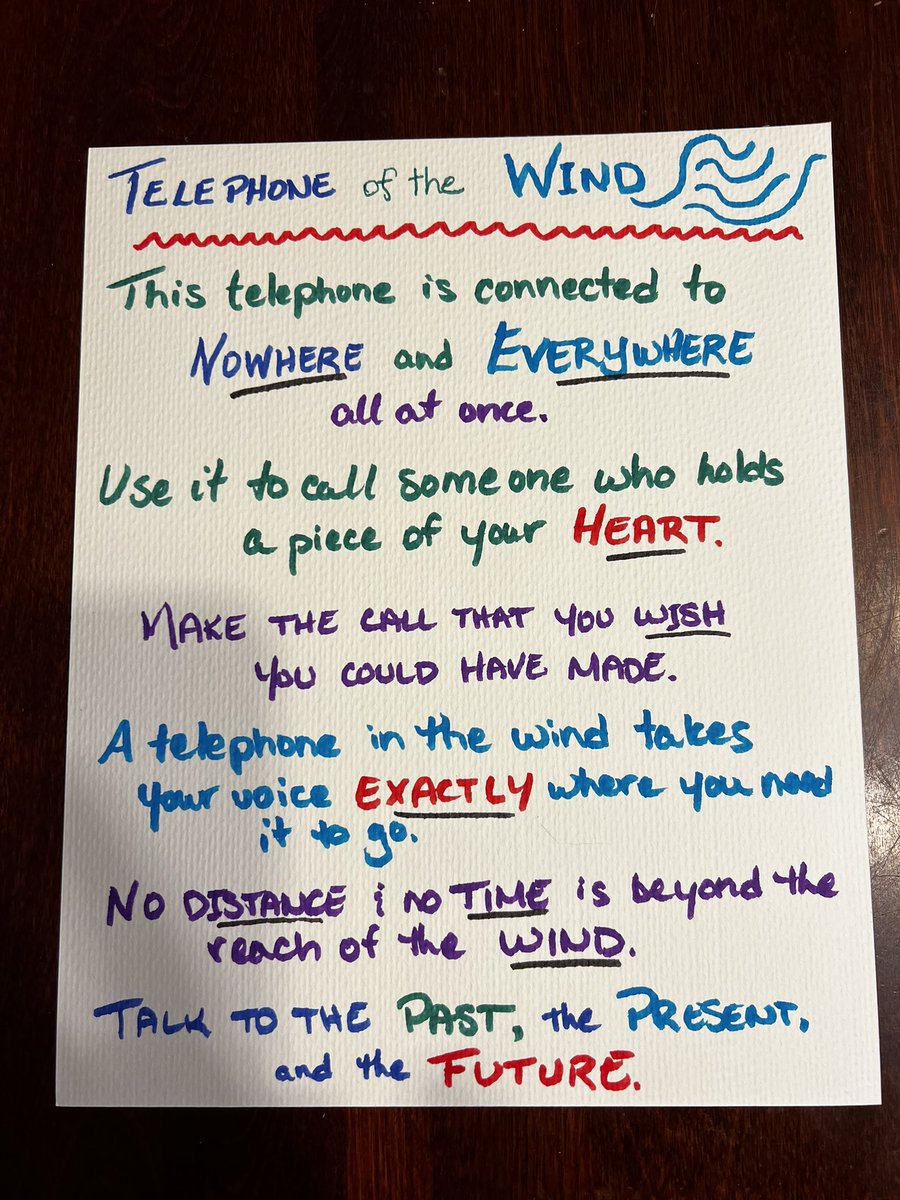 TELEPHONE of the WIND
This telephone is connected to
NOWHERE and EVERYWHERE
all at once.
Use it to call someone who holds
a piece of your HEART.
MAKE THE CALL THAT YOU WISH
YOU COULD HAVE MADE.
A telephone in the wind takes
your voice EXACTLY where you need
it to go.
NO DISTANCE & no TIME is beyond the
reach of the WIND.
TALK TO THE PAST, the PRESENT,
and the FUTURE.